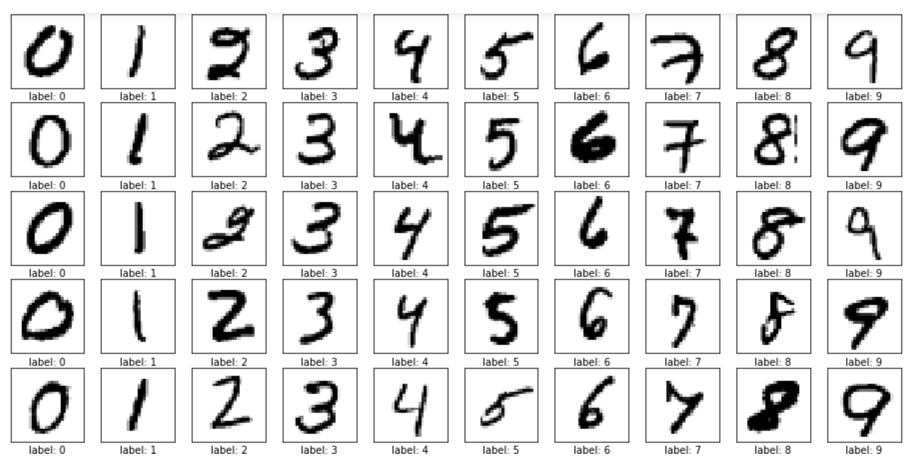 0 1 2 3 4 5 6 7 8 9
label: 0 label: 1 label: 2 label: 3 label: 4 label: 5 label: 6 label: 7 label: 8 label: 9
0 1 2 3 4 5 6 7 8 9
label: 0 label: 1 label: 2 label: 3 label: 4 label: 5 label: 6 label: 7 label: 8 label: 9
0 1 2 3 4 5 6 7 8 9
label: 0 label: 1 label: 2 label: 3 label: 4 label: 5 label: 6 label: 7 label: 8 label: 9
0 1 2 3 4 5 6 7 8 9
label: 0 label: 1 label: 2 label: 3 label: 4 label: 5 label: 6 label: 7 label: 8 label: 9
0 1 2 3 4 5 6 7 8 9
label: 0 label: 1 label: 2 label: 3 label: 4 label: 5 label: 6 label: 7 label: 8 label: 9